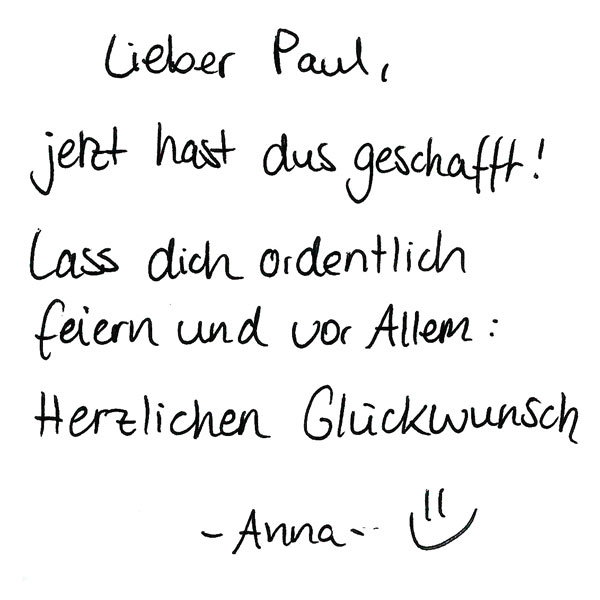 Lieber Paul,
jetzt hast dus geschafft!
Lass dich ordentlich
feiern und vor Allem:
Herzlichen Glückwunsch
-Anna-